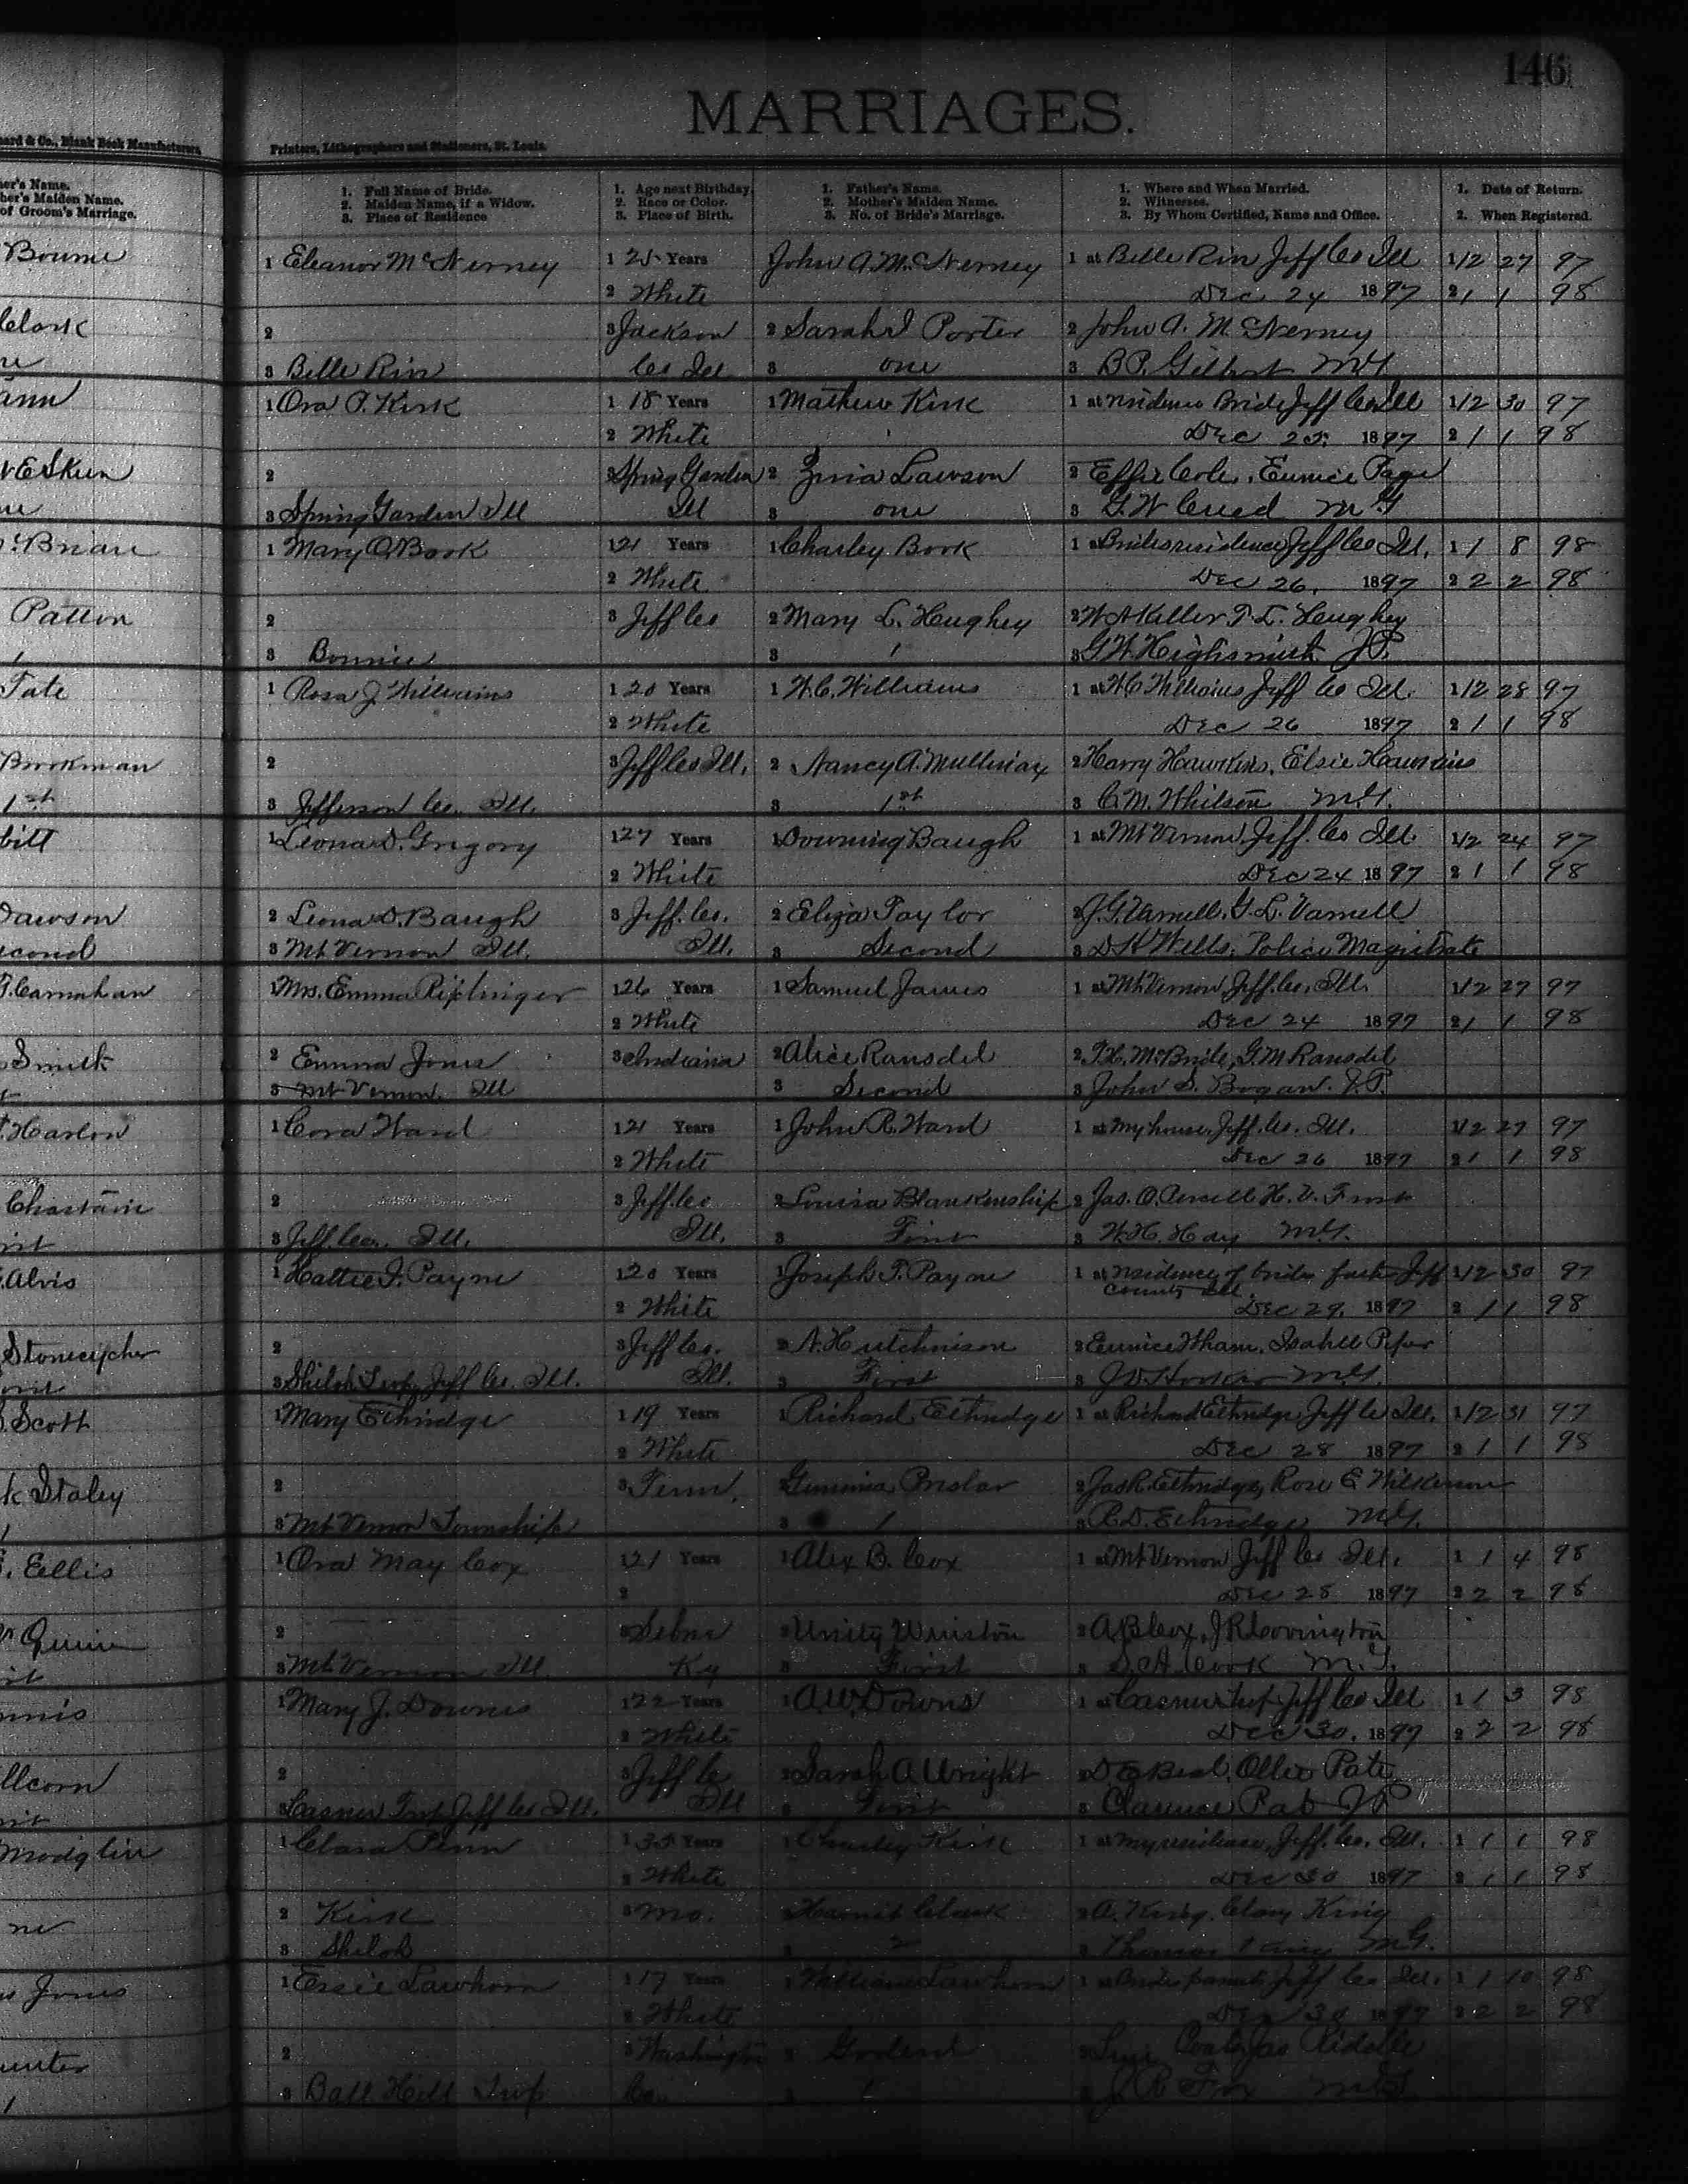 146
MARRIAGES.
Printers, Lithographers and Stationers, St. Louis.
ard & Co., Blank Book Manufacturers,
er's Name.
her's Maiden Name.
of Groom's Marriage.
1. Full Name of Bride.
2. Maiden Name, if a Widow.
3. Place of Residence
1. Age next Birthday.
2. Race or Color.
3. Place of Birth.
1. Father's Name.
2. Mother's Maiden Name.
3. No. of Bride's Marriage.
1. Where and When Married.
2. Witnesses.
3. By Whom Certified, Name and Office.
1. Date of Return.
2. When Registered.
1 Eleanor McNerney 1 25 Years John A. McNerney 1 at Belle Rin Jeff Co Ill 1 12 27 97
2 White Dec 24 1897 2 1 1 98
2 3 Jackson 2 Sarah I Porter 2 John A. McNerney
3 Belle Rin Co Ill 3 one 3 B.P. Gilbert MG
1 Ora P. Kirk 1 18 Years 1 Mathew Kirk 1 at residence Bride Jeff Co Ill 1 12 30 97
2 White Dec 25 1897 2 1 1 98
2 3 Spring Garden 2 Lawson 2 Effie Cole, Eunice Page
3 Spring Garden Ill Ill 3 one 3 G.W. MG
1 Mary O. Book 1 21 Years 1 Charley Book 1 at Brides residence Jeff Co Ill. 1 1 8 98
2 White Dec 26, 1897 2 2 2 98
2 3 Jeff Co 2 Mary L. Heughey 2 W A Keller. T. L. Heughey
3 Bonnie 3 1 3 G.W. Highsmith J.P.
1 Rosa J. Williams 1 20 Years 1 W.C. Williams 1 at W.C. Williams Jeff Co Ill. 1 12 28 97
2 White Dec 26 1897 2 1 1 98
2 3 Jeff Co Ill. 2 Nancy A. Mullinax 2 Harry Hawkins, Elsie Hawkins
3 Jefferson Co. Ill. 3 1st 3 C.M. Whitson M.G.
1 Leona D. Gregory 1 27 Years 1 Downing Baugh 1 at Mt Vernon, Jeff. Co Ill. 1 12 24 97
2 White Dec 24 1897 2 1 1 98
2 Leona D. Baugh 3 Jeff. Co. 2 Eliza Taylor 2 J.G. Varnell, G.L. Varnell
3 Mt. Vernon Ill. Ill. 3 Second 3 D H Wells, Police Magistrate
1 Mrs. Emma Riplinger 1 26 Years 1 Samuel James 1 at Mt. Vernon, Jeff. Co., Ill. 1 12 27 97
2 White Dec 24 1897 2 1 1 98
2 Emma Jones 3 Indiana 2 Alice Ransdel 2 T.H. McBride, G.M. Ransdel
3 Mt Vernon Ill 3 Second 3 John S. Bogan. J.P.
1 Cora Ward 1 21 Years 1 John R. Ward 1 at My house, Jeff. Co. Ill. 1 12 27 97
2 White Dec 26 1897 2 1 1 98
2 3 Jeff. Co 2 Louisa Blankenship 2 Jas. O. H. V. Frost
3 Jeff. Co., Ill. Ill. 3 First 3 W.H. Hay M.G.
1 Hattie I. Payne 1 20 Years 1 Joseph T. Payne 1 at residence of brides father Jeff 1 12 30 97
County Ill.
2 White Dec 29, 1897 2 1 1 98
2 3 Jeff Co. 2 A. Hutchnison 2 Eunice Wham, Isabell Piper
3 Shiloh Twp. Jeff Co. Ill. Ill. 3 First 3 J.D. M.G.
1 Mary Ethridge 1 19 Years 1 Richard Ethridge 1 at Richard Ethridge Jeff Co Ill. 1 12 31 97
2 White Dec 28 1897 2 1 1 98
2 3 Tenn. 2 Preslar 2 Jas R. Ethridge, Rose E Wilkerson
3 Mt Vernon Township 3 1 3 R.D. Ethridge M.G.
1 Ora May Cox 1 21 Years 1 Alex B. Cox 1 at Mt Vernon Jeff Co Ill. 1 1 4 98
2 Dec 28 1897 2 2 2 98
2 3 Sebra 2 Unity Winston 2 A B Cox, J R Covington
3 Mt. Vernon Ill Ky 3 First 3 S.A. Cook M.G.
1 Mary J. Downs 1 22 Years 1 A.W. Downs 1 at Casner Twp Jeff Co Ill 1 1 3 98
2 White Dec 30, 1897 2 2 2 98
2 3 Jeff Co 2 Sarah A Wright 2 D E Beal, Ollie Pate
3 Casner Twp Jeff Co Ill. Ill 3 First 3 Clarence Pate JP
1 Clara Penn 1 35 Years 1 Charley Kirk 1 at My residence, Jeff. Co. Ill. 1 1 1 98
2 White Dec 30 1897 2 1 1 98
2 Kirk 3 Mo. 2 Clark 2 A. King, Clary King
3 Shiloh 3 2 3 Thomas King M.G.
1 Essie Lawhorn 1 17 Years 1 William Lawhorn 1 at Brides parents Jeff Co Ill. 1 1 10 98
2 White Dec 30 1897 2 2 2 98
2 3 Washington 2 2 Jas
3 Ball Hill Twp Co. 3 1 3 J.R. Fox M.G.
Bourne
Clark
ann
Eskun
Brian
Patton
Tate
Brookman
1st
bitt
Dawson
econd
Carnahan
Smith
Harlon
Chastain
Alvis
Stonecipher
Scott
k Staley
Ellis
Quinn
nnis
llcorn
Modglin
ne
Jones
unter